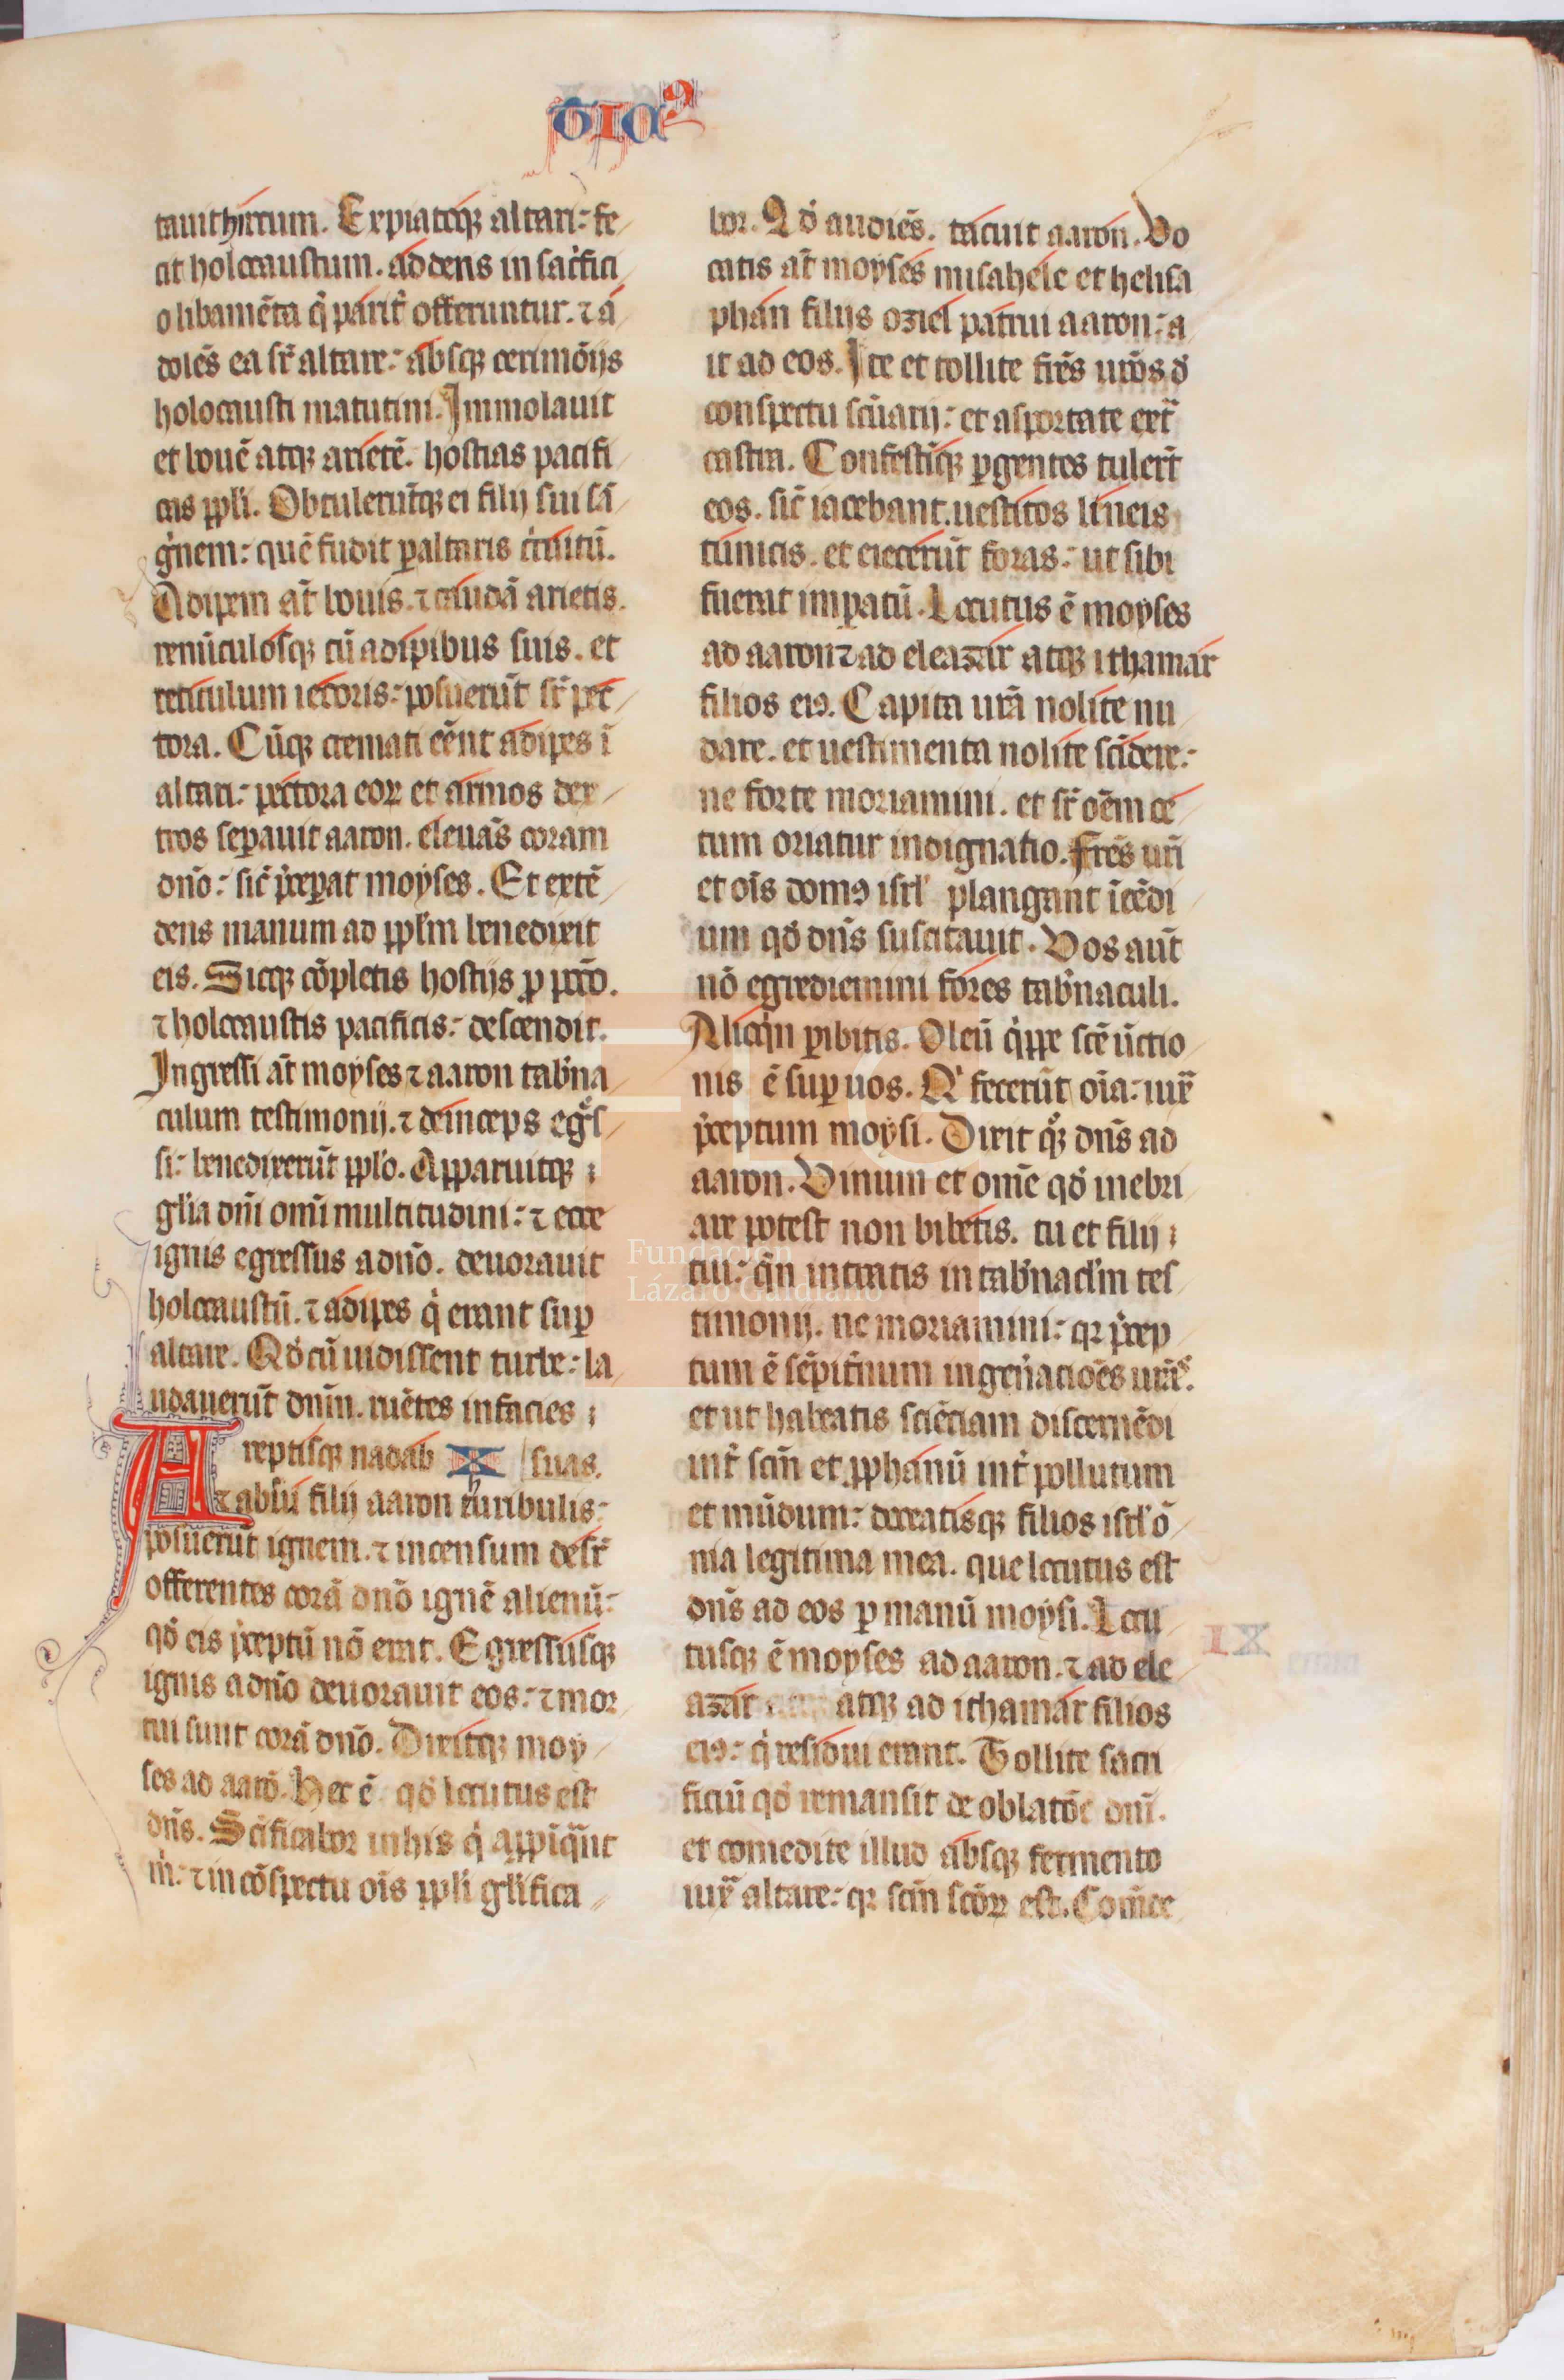 ticꝰ
tauit hircum. Expiatoq altari: fe
cit holocaustum. addens in sacͥfici
o libamēta q̄ parit̄ offeruntur. ⁊ a
dolēs ea sr̄ altare: absqꝫ cerimōijs
holocausti matutini. Immolauit
et bouē atqꝫ arietē. hostias pacifi
cas ppli. Obtulerūtqꝫ ei filij sui sā
gͥnem: quē fudit ꝑ altaris cͥcuitū.
Adipem at̄ bouis. ⁊ caudā arietis.
renūculosqꝫ cū adipibus suis. et
reticulum iecoris: posuerūt sr̄ pec
tora. Cūqꝫ cremati eēnt adipes ī
altari: pectora eoꝝ et armos dex
tros seꝑauit aaron. eleuās coram
dn̄o: sic̄ p̄ceꝑat moyses. Et extē
dens manum ad pplm benedixit
eis. Sicqꝫ cōpletis hostijs ꝓ pcc̄o.
⁊ holocaustis pacificis: descendit.
Ingressi at̄ moyses ⁊ aaron tab̄na
culum testimonij. ⁊ deinceps egͣs
si: benedixerūt pplo. Apparuitqꝫ
gl̄ia dn̄i omī multitudini: ⁊ ecce
ignis egressus a dn̄o. deuorauit
holocaustū. ⁊ adipes q̄ erant suꝑ
altare. Qḋ cū uidissent turbe: la
udauerūt dn̄m. ruētes in facies
suas.
X
Areptisqꝫ nadab
⁊ abiu filij aaron thuribulis:
posuerūt ignem. ⁊ incensum desr̄
offerentes corā dn̄o ignē alienū:
qḋ eis p̄ceptū nō erat. Egressusqꝫ
ignis a dn̄o deuorauit eos: ⁊ mor
tui sunt corā dn̄o. Dixitqꝫ moy
ses ad aarō. Hec ē qḋ locutus est
dn̄s. Sc̄ificabor in his q̄ appīqͣnt
m̄: ⁊ in cōspectu ois ppli gl̄ifica
bor. Qḋ audiēs. tacuit aaron. Vo
catis at̄ moyses misahele et helisa
phan filijs oziel patrui aaron: a
it ad eos. Ite et tollite fr̄es ur̄os ḋ
conspectu sc̄uarij: et asportate ext̄
castra. Confestīqꝫ ꝑgentes tulert̄
eos. sic̄ iacebant. uestitos lineis
tunicis. et eiecerūt foras: ut sibi
fuerat imꝑatū. Locutus ē moyses
ad aaron ⁊ ad eleazar atqꝫ ithamar
filios eiꝰ. Capita ur̄a nolite nu
dare. et uestimenta nolite scīdere:
ne forte moriamini. et sr̄ oēm ce
tum oriatur indignatio. Fr̄es ur̄i
et ois domꝰ isrl̄ plangant īcēdi
um qḋ dn̄s suscitauit. Vos aut̄
nō egrediemini fores tab̄naculi.
Alioqͥn ꝑibitis. Oleū qͥppe sc̄e ūctio
nis ē suꝑ uos. Qͥ fecerūt oīa: iux̄
p̄ceptum moysi. Dixit qͦꝫ dn̄s ad
aaron. Vinum et omē qḋ inebri
are potest non bibetis. tu et filij
tui: qn̄ intratis in tab̄nacl̄m tes
timonij. ne moriamini: qꝛ p̄cep
tum ē sēpit̄num in gen̄atioēs ur̄as.
et ut habeatis sciētiam discernēdi
int̄ scm̄ et ꝓphanū int̄ pollutum
et mūdum: doceatisqꝫ filios isrl̄ o
nia legitima mea. que locutus est
dn̄s ad eos ꝑ manū moysi. Locu
IX
tusqꝫ ē moyses ad aaron. ⁊ ad ele
azar atqꝫ ad ithamar filios
eiꝰ: q̄ residui erant. Tollite sacri
ficiū qḋ remansit de oblatōe dn̄i.
et comedite illud absqꝫ fermento
iux̄ altare: qꝛ scm̄ scōꝝ est. Comēde
Fundación
Lázaro Galdiano